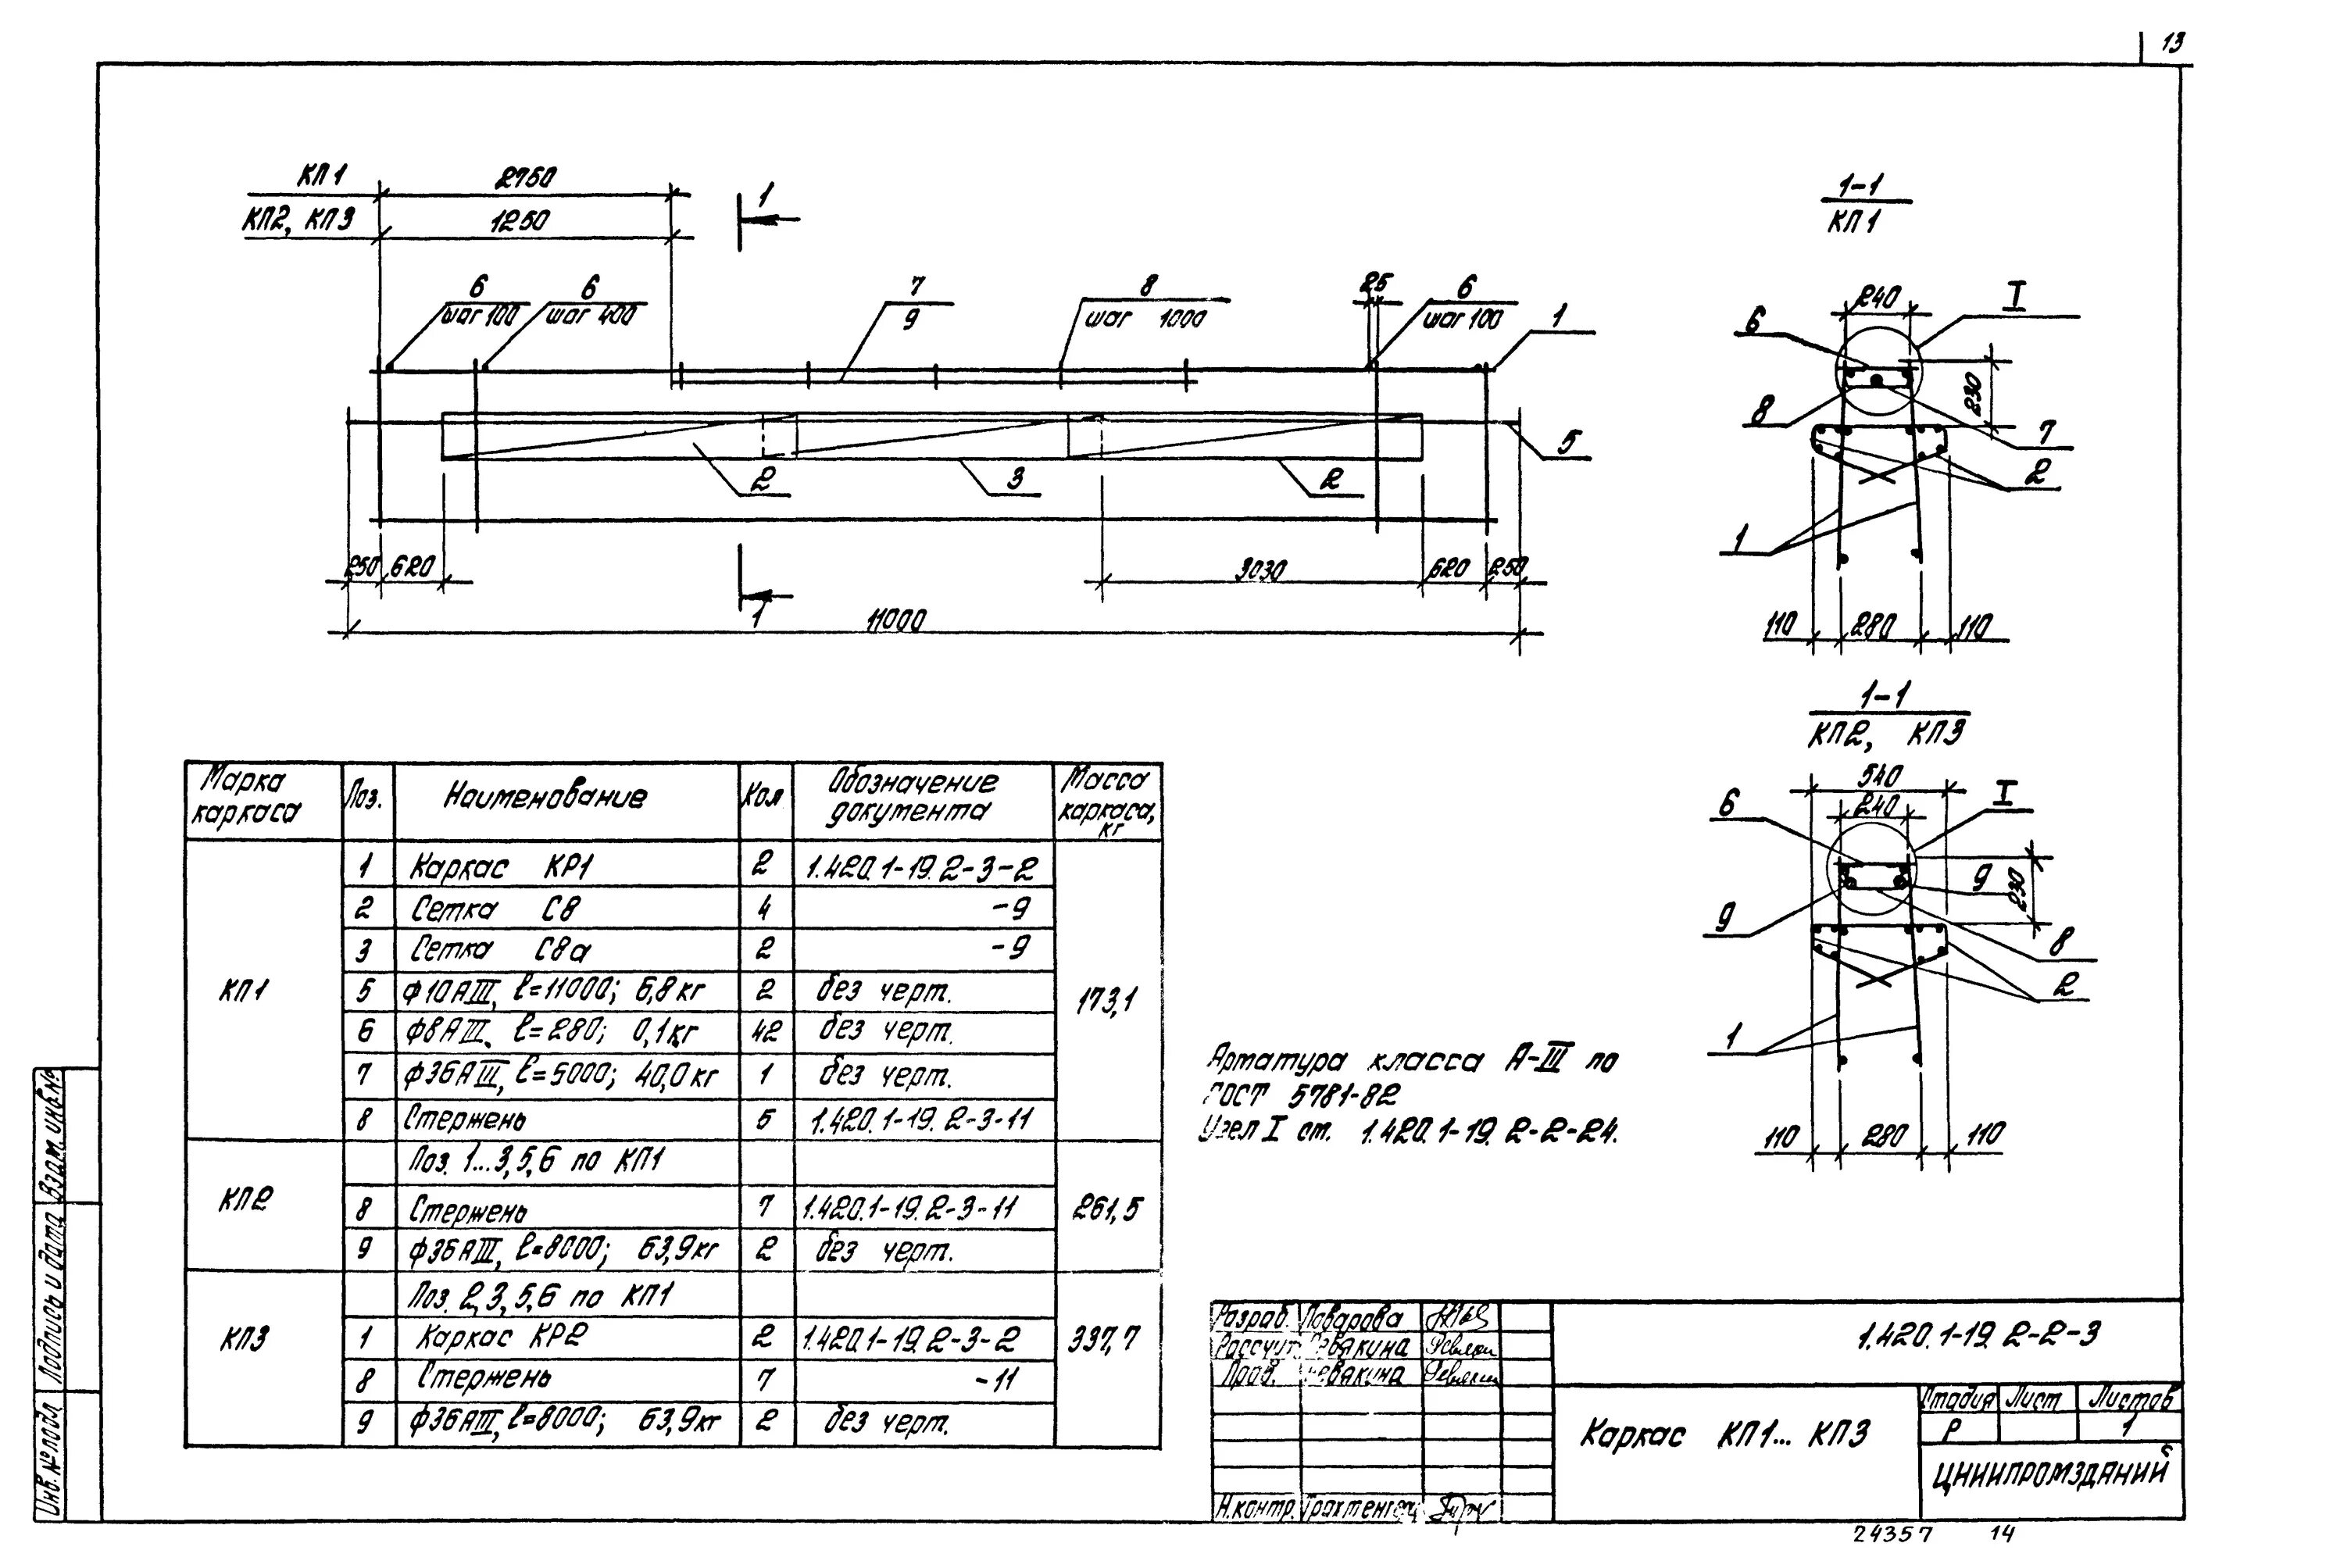 13
КП1 2750
КП2, КП3 1250
1
6 шаг 100
6 шаг 400
7
9
8 шаг 1000
25
6 шаг 100
1
5
2
3
2
250 620 3030 620 250
1
11000
1-1
КП1
240
I
6
8
230
7
2
1
110 280 110
1-1
КП2, КП3
540
240
I
6
9
9
230
8
2
1
110 280 110
Марка каркаса Поз. Наименование Кол Обозначение документа Масса каркаса, кг
КП1 173,1
1 Каркас КР1 2 1.420.1-19.2-3-2
2 Сетка С8 4 -9
3 Сетка С8а 2 -9
5 ф10АIII, ℓ=11000; 6,8кг 2 без черт.
6 ф8АIII, ℓ=280; 0,1кг 42 без черт.
7 ф36АIII, ℓ=5000; 40,0кг 1 без черт.
8 Стержень 5 1.420.1-19.2-3-11
КП2 261,5
Поз. 1...3,5,6 по КП1
8 Стержень 7 1.420.1-19.2-3-11
9 ф36АIII, ℓ=8000; 63,9кг 2 без черт.
КП3 337,7
Поз. 2,3,5,6 по КП1
1 Каркас КР2 2 1.420.1-19.2-3-2
8 Стержень 7 -11
9 ф36АIII, ℓ=8000; 63,9кг 2 без черт.
Арматура класса А-III по
ГОСТ 5781-82
Узел I см. 1.420.1-19.2-2-24.
Разраб. Поварова
Рассчит. Ревякина
Пров. Ревякина
Н.контр.
1.420.1-19.2-2-3
Каркас КП1...КП3
Стадия Лист Листов
Р 1
ЦНИИПРОМЗДАНИЙ
Инв.№подл. Подпись и дата Взам.инв.№
24357 14